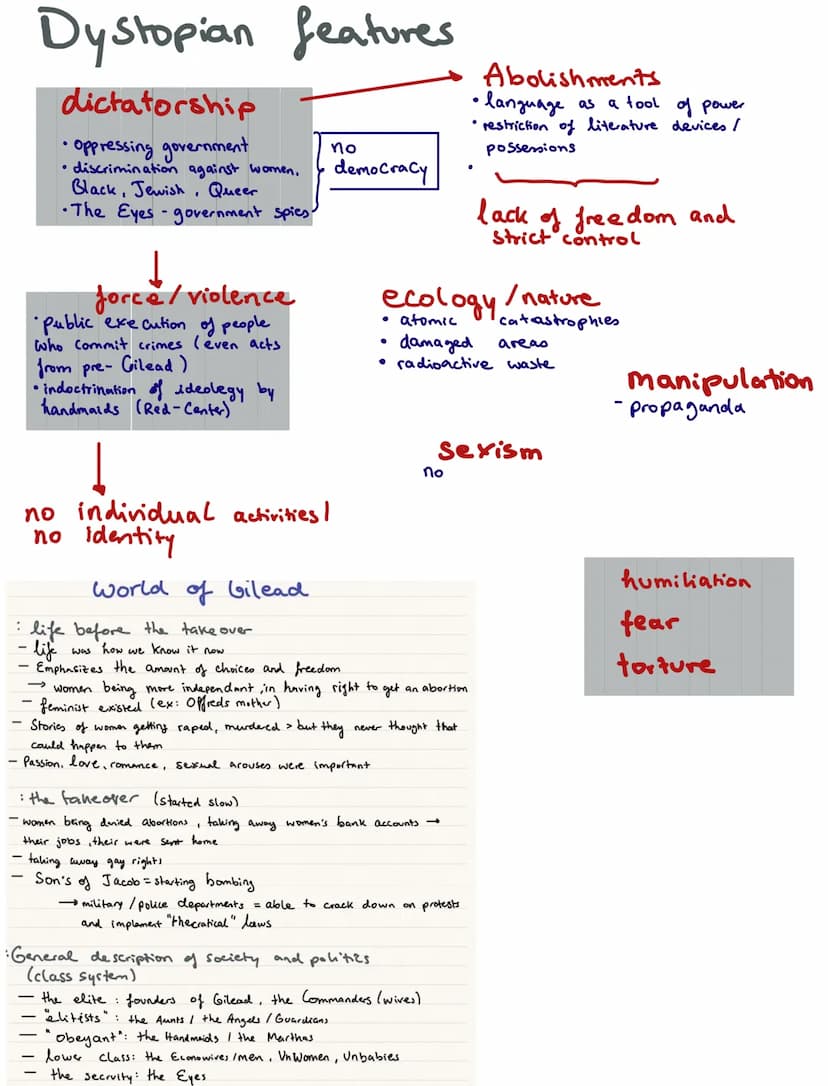 Dystopian features
dictatorship
• oppressing government
• discrimination against women,
Black, Jewish, Queer
• The Eyes - government spies
no
democracy
Abolishments
• language as a tool of power
• restriction of literature devices /
possessions
•
lack of freedom and
strict control
force/violence
• public execution of people
who commit crimes (even acts
from pre-Gilead)
• indoctrination of ideology by
handmaids (Red-Center)
ecology/nature
• atomic catastrophies
• damaged areas
• radioactive waste
manipulation
- propaganda
sexism
no
no individual activities/
no identity
humiliation
fear
torture
World of Gilead
: life before the takeover
- life was how we know it now
- Emphasizes the amount of choices and freedom
→ women being more independant, in having right to get an abortion
- feminist existed (ex: Offreds mother)
- Stories of women getting raped, murdered > but they never thought that
could happen to them
- Passion, love, romance, sexual arouses were important
: the takeover (started slow)
- women being denied abortions, taking away women's bank accounts →
their jobs, their were sent home
- taking away gay rights
- Son's of Jacob = starting bombing
→ military / police departments = able to crack down on protests
and implement "thecratical" laws
: General description of society and politics
(class system)
- the elite : founders of Gilead, the Commanders (wives)
- "elitists" : the Aunts / the Angels / Guardians
- "obeyant": the Handmaids / the Marthas
- lower class: the Econowives/men, UnWomen, Unbabies
- the secrvity: the Eyes